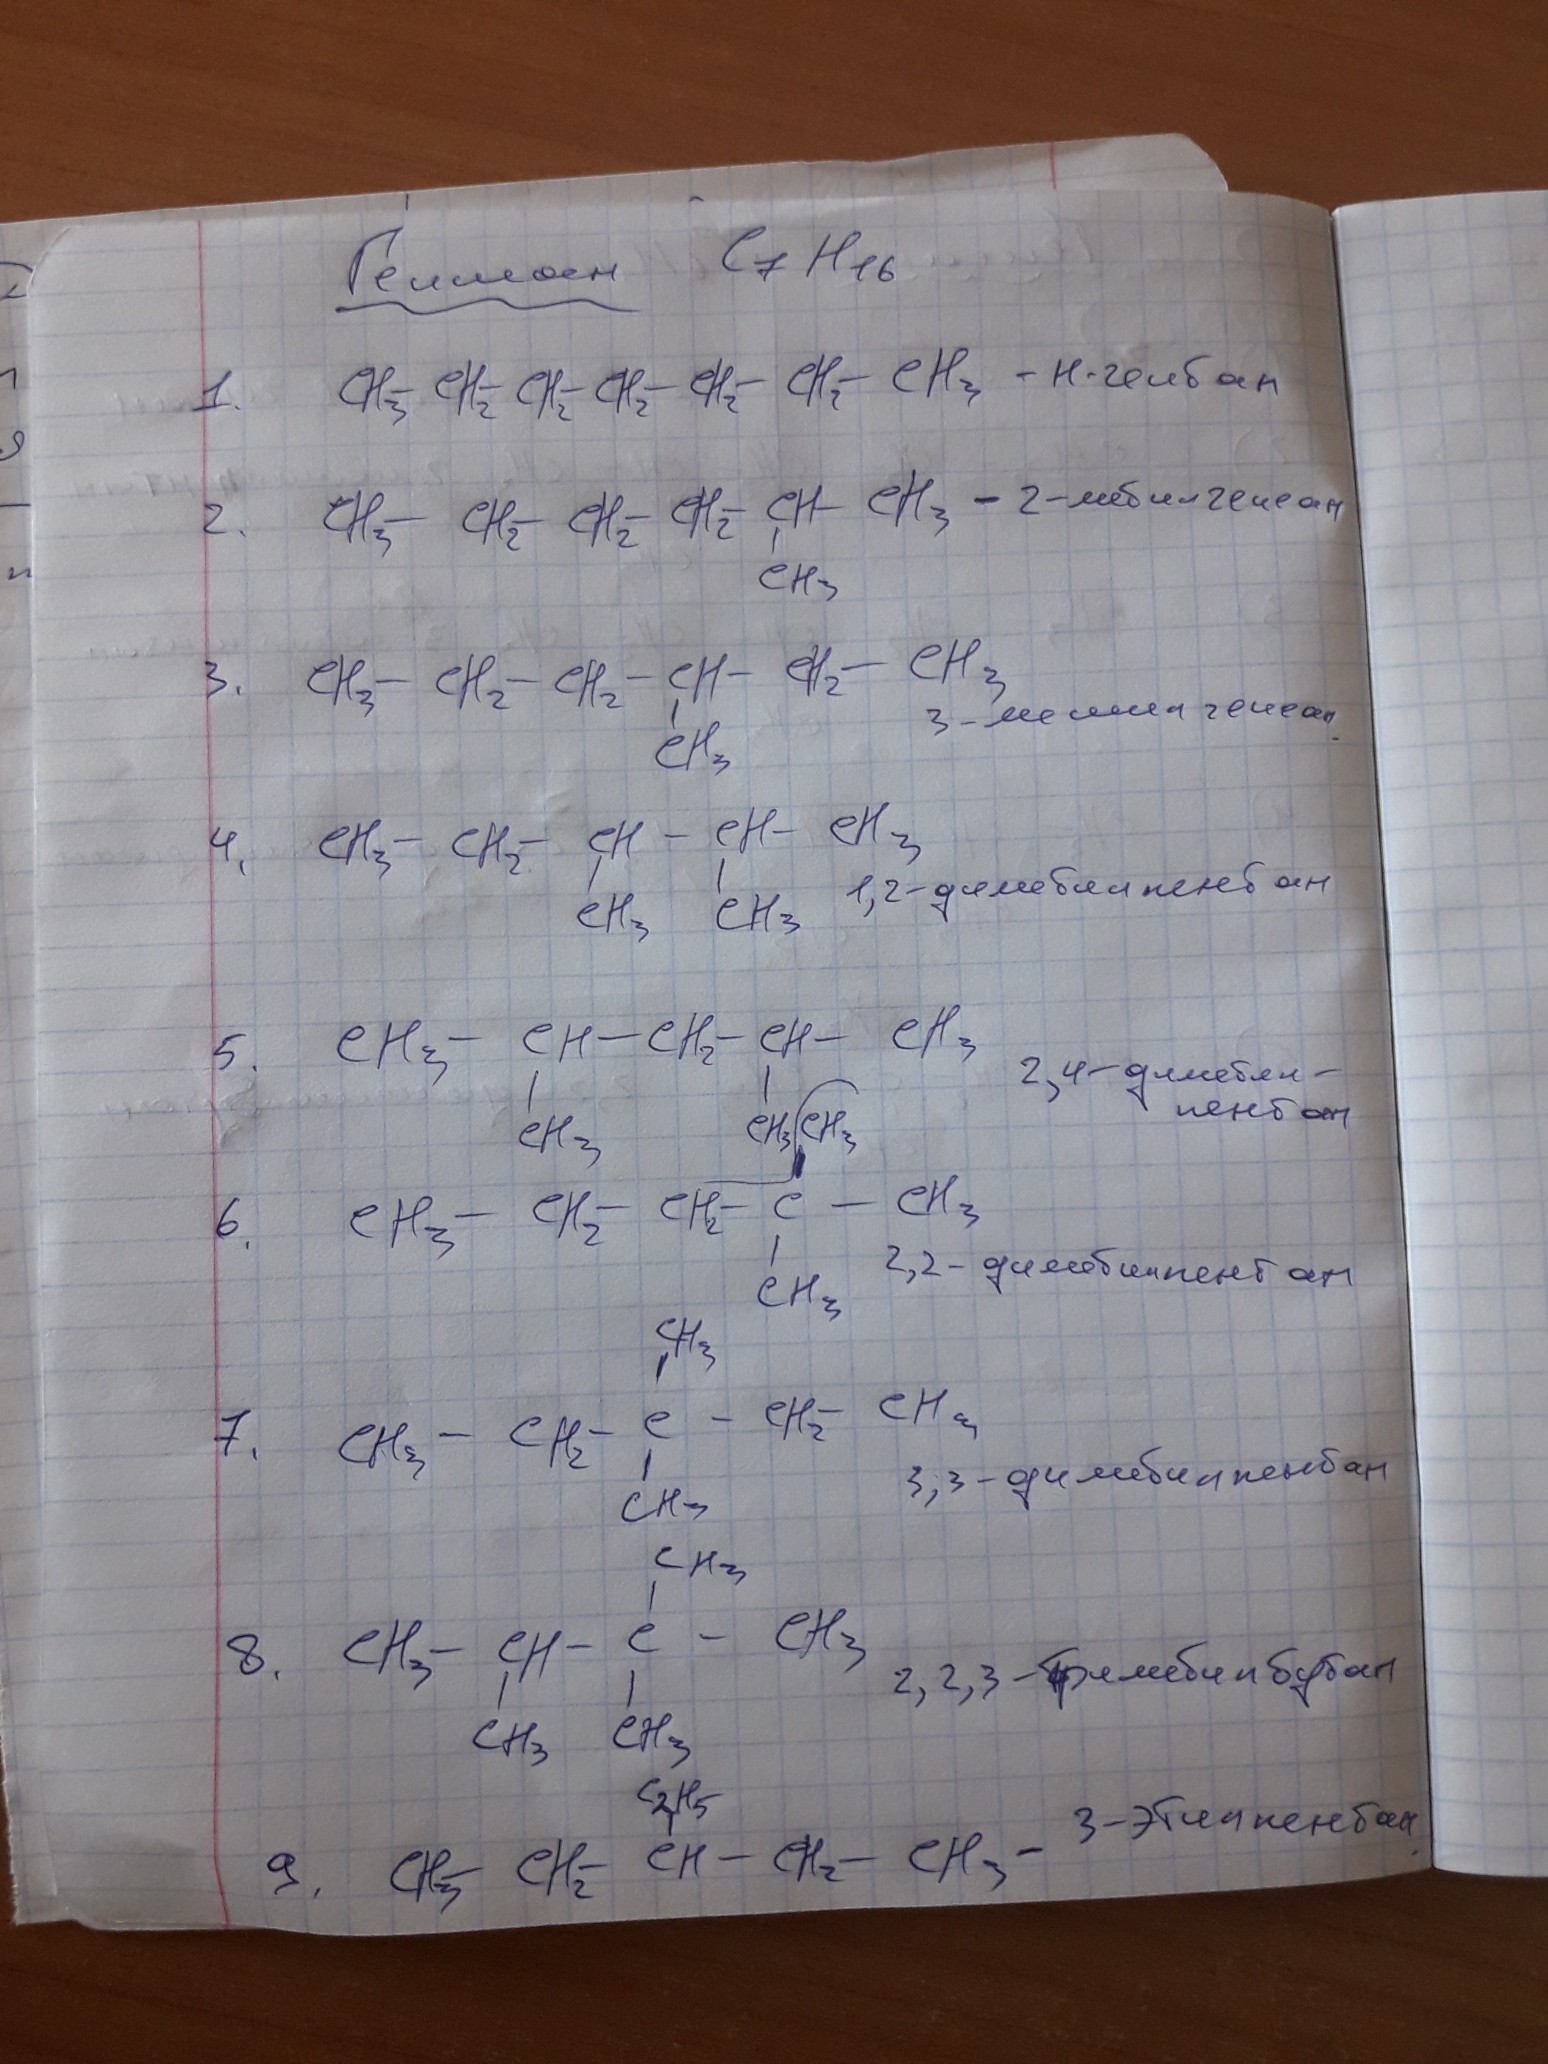 Гептан C₇H₁₆
1. CH₃- CH₂- CH₂- CH₂- CH₂- CH₂- CH₃ - н-гептан
2. CH₃- CH₂- CH₂- CH₂- CH- CH₃ - 2-метилгексан
CH₃
3. CH₃- CH₂- CH₂- CH- CH₂- CH₃
3-метилгексан
CH₃
4. CH₃- CH₂- CH - CH- CH₃
CH₃ CH₃ 1,2-диметилпентан
5. CH₃- CH- CH₂- CH- CH₃
2,4-диметил-
пентан
CH₃ CH₃ CH₃
6. CH₃- CH₂- CH₂- C - CH₃
2,2-диметилпентан
CH₃
CH₃
7. CH₃- CH₂- C - CH₂- CH₃
3,3-диметилпентан
CH₃
CH₃
8. CH₃- CH- C - CH₃
2,2,3-триметилбутан
CH₃ CH₃
C₂H₅
9. CH₃- CH₂- CH - CH₂- CH₃ - 3-этилпентан